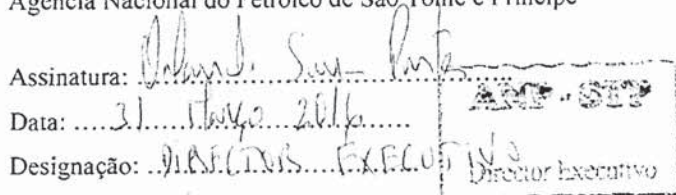 Agência Nacional do Petróleo de São Tomé e Príncipe
Assinatura: Orlando Sousa Pontes
Data: 31 Março 2016
Designação: DIRECTOR EXECUTIVO
ANP - STP
Director Executivo